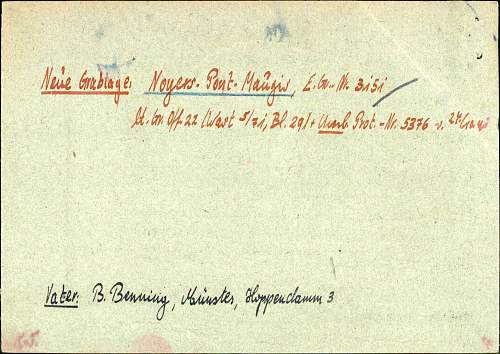 Neue Grablage: Noyers-Pont-Maugis, E. Gr.-Nr. 3151
Lt. Gr. Off 22 Bl. 291 + Umb. Prot.-Nr. 5376 v.
Vater: B. Benning, Münster, Hoppendamm 3